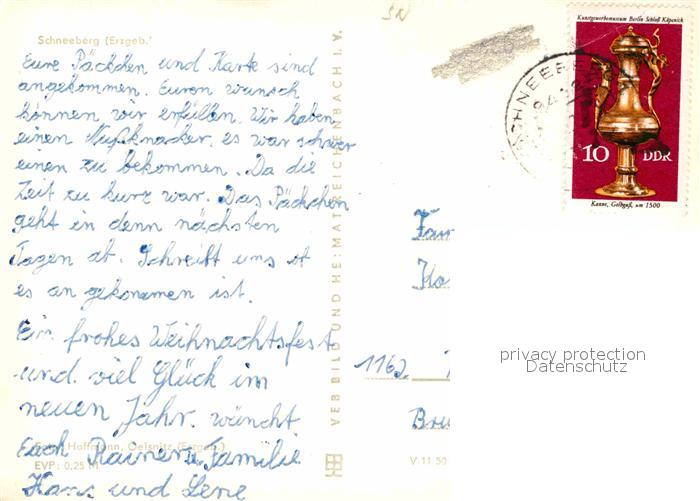 Schneeberg (Erzgeb.)
Eure Päckchen und Karte sind
angekommen. Euren wunsch
können wir erfüllen. Wir haben
einen Nußknacker. es war schwer
einen zu bekommen. Da die
Zeit zu kurz war. Das Päckchen
geht in denn nächsten
Tagen ab. Schreibt uns ob
es an gekommen ist.
Ein frohes Weihnachtsfest
und viel Glück im
neuen Jahr. wüncht
Euch Rainer u. Familie
Hans und Lene
Foto: Hoffmann, Oelsnitz (Erzgeb.)
EVP: 0,25 M
VEB BILD UND HEIMAT REICHENBACH I. V.
V 11 50
Kunstgewerbemuseum Berlin Schloß Köpenick
10 DDR
Kanne, Gelbguß, um 1500
SCHNEEBERG
Fam
1162
Bru
privacy protection
Datenschutz